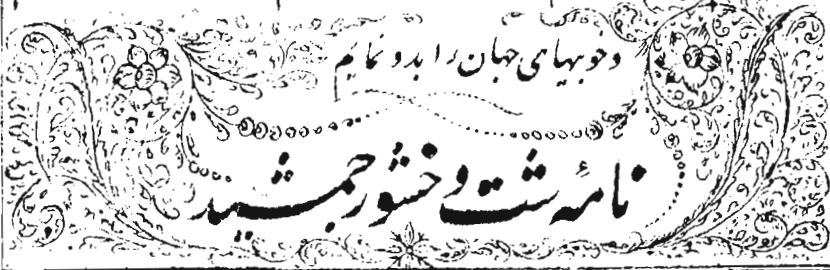 و خوبیهای جهان را بدو نمایم
نامهٔ شت وخشور جمشید